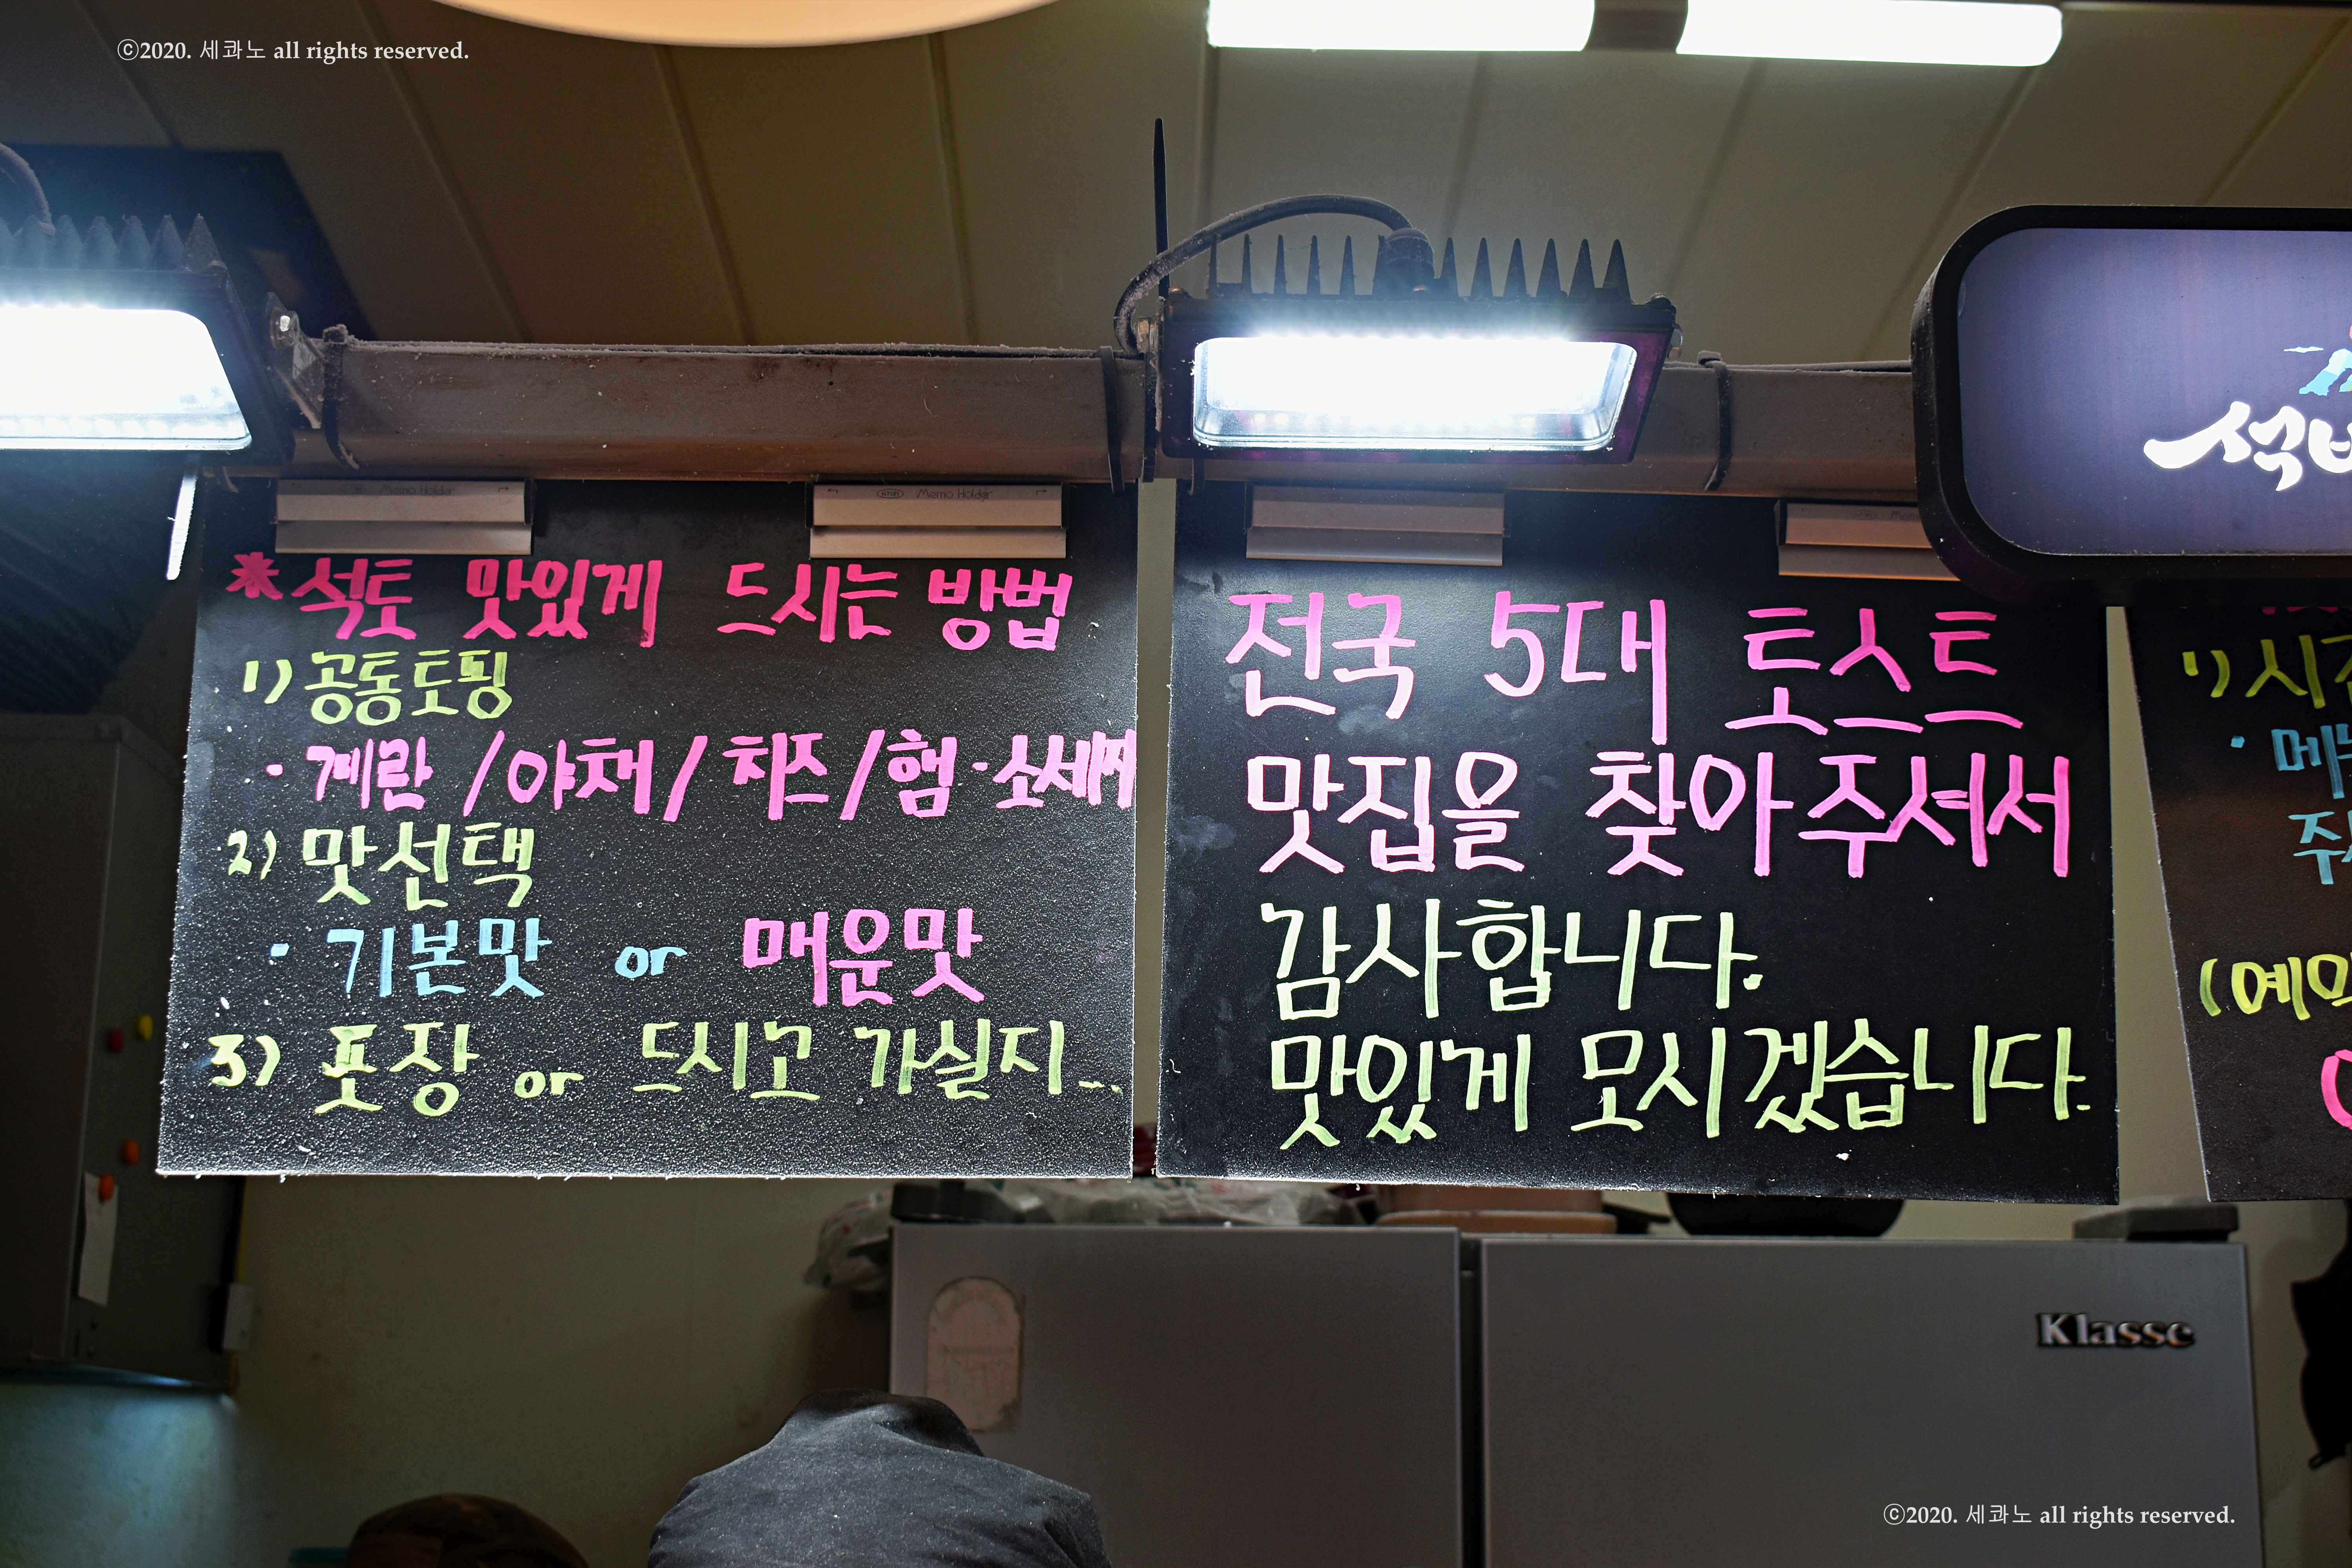 ⓒ2020. 세콰노 all rights reserved.
Memo Holder
Memo Holder
*석토 맛있게 드시는 방법
1) 공동토핑
· 계란 / 야채 / 치즈 / 햄·소세지
2) 맛선택
· 기본맛 or 매운맛
3) 포장 or 드시고 가실지...
전국 5대 토스트
맛집을 찾아주셔서
감사합니다.
맛있게 모시겠습니다.
석
1) 시
· 메
주
(예
Klasse
ⓒ2020. 세콰노 all rights reserved.